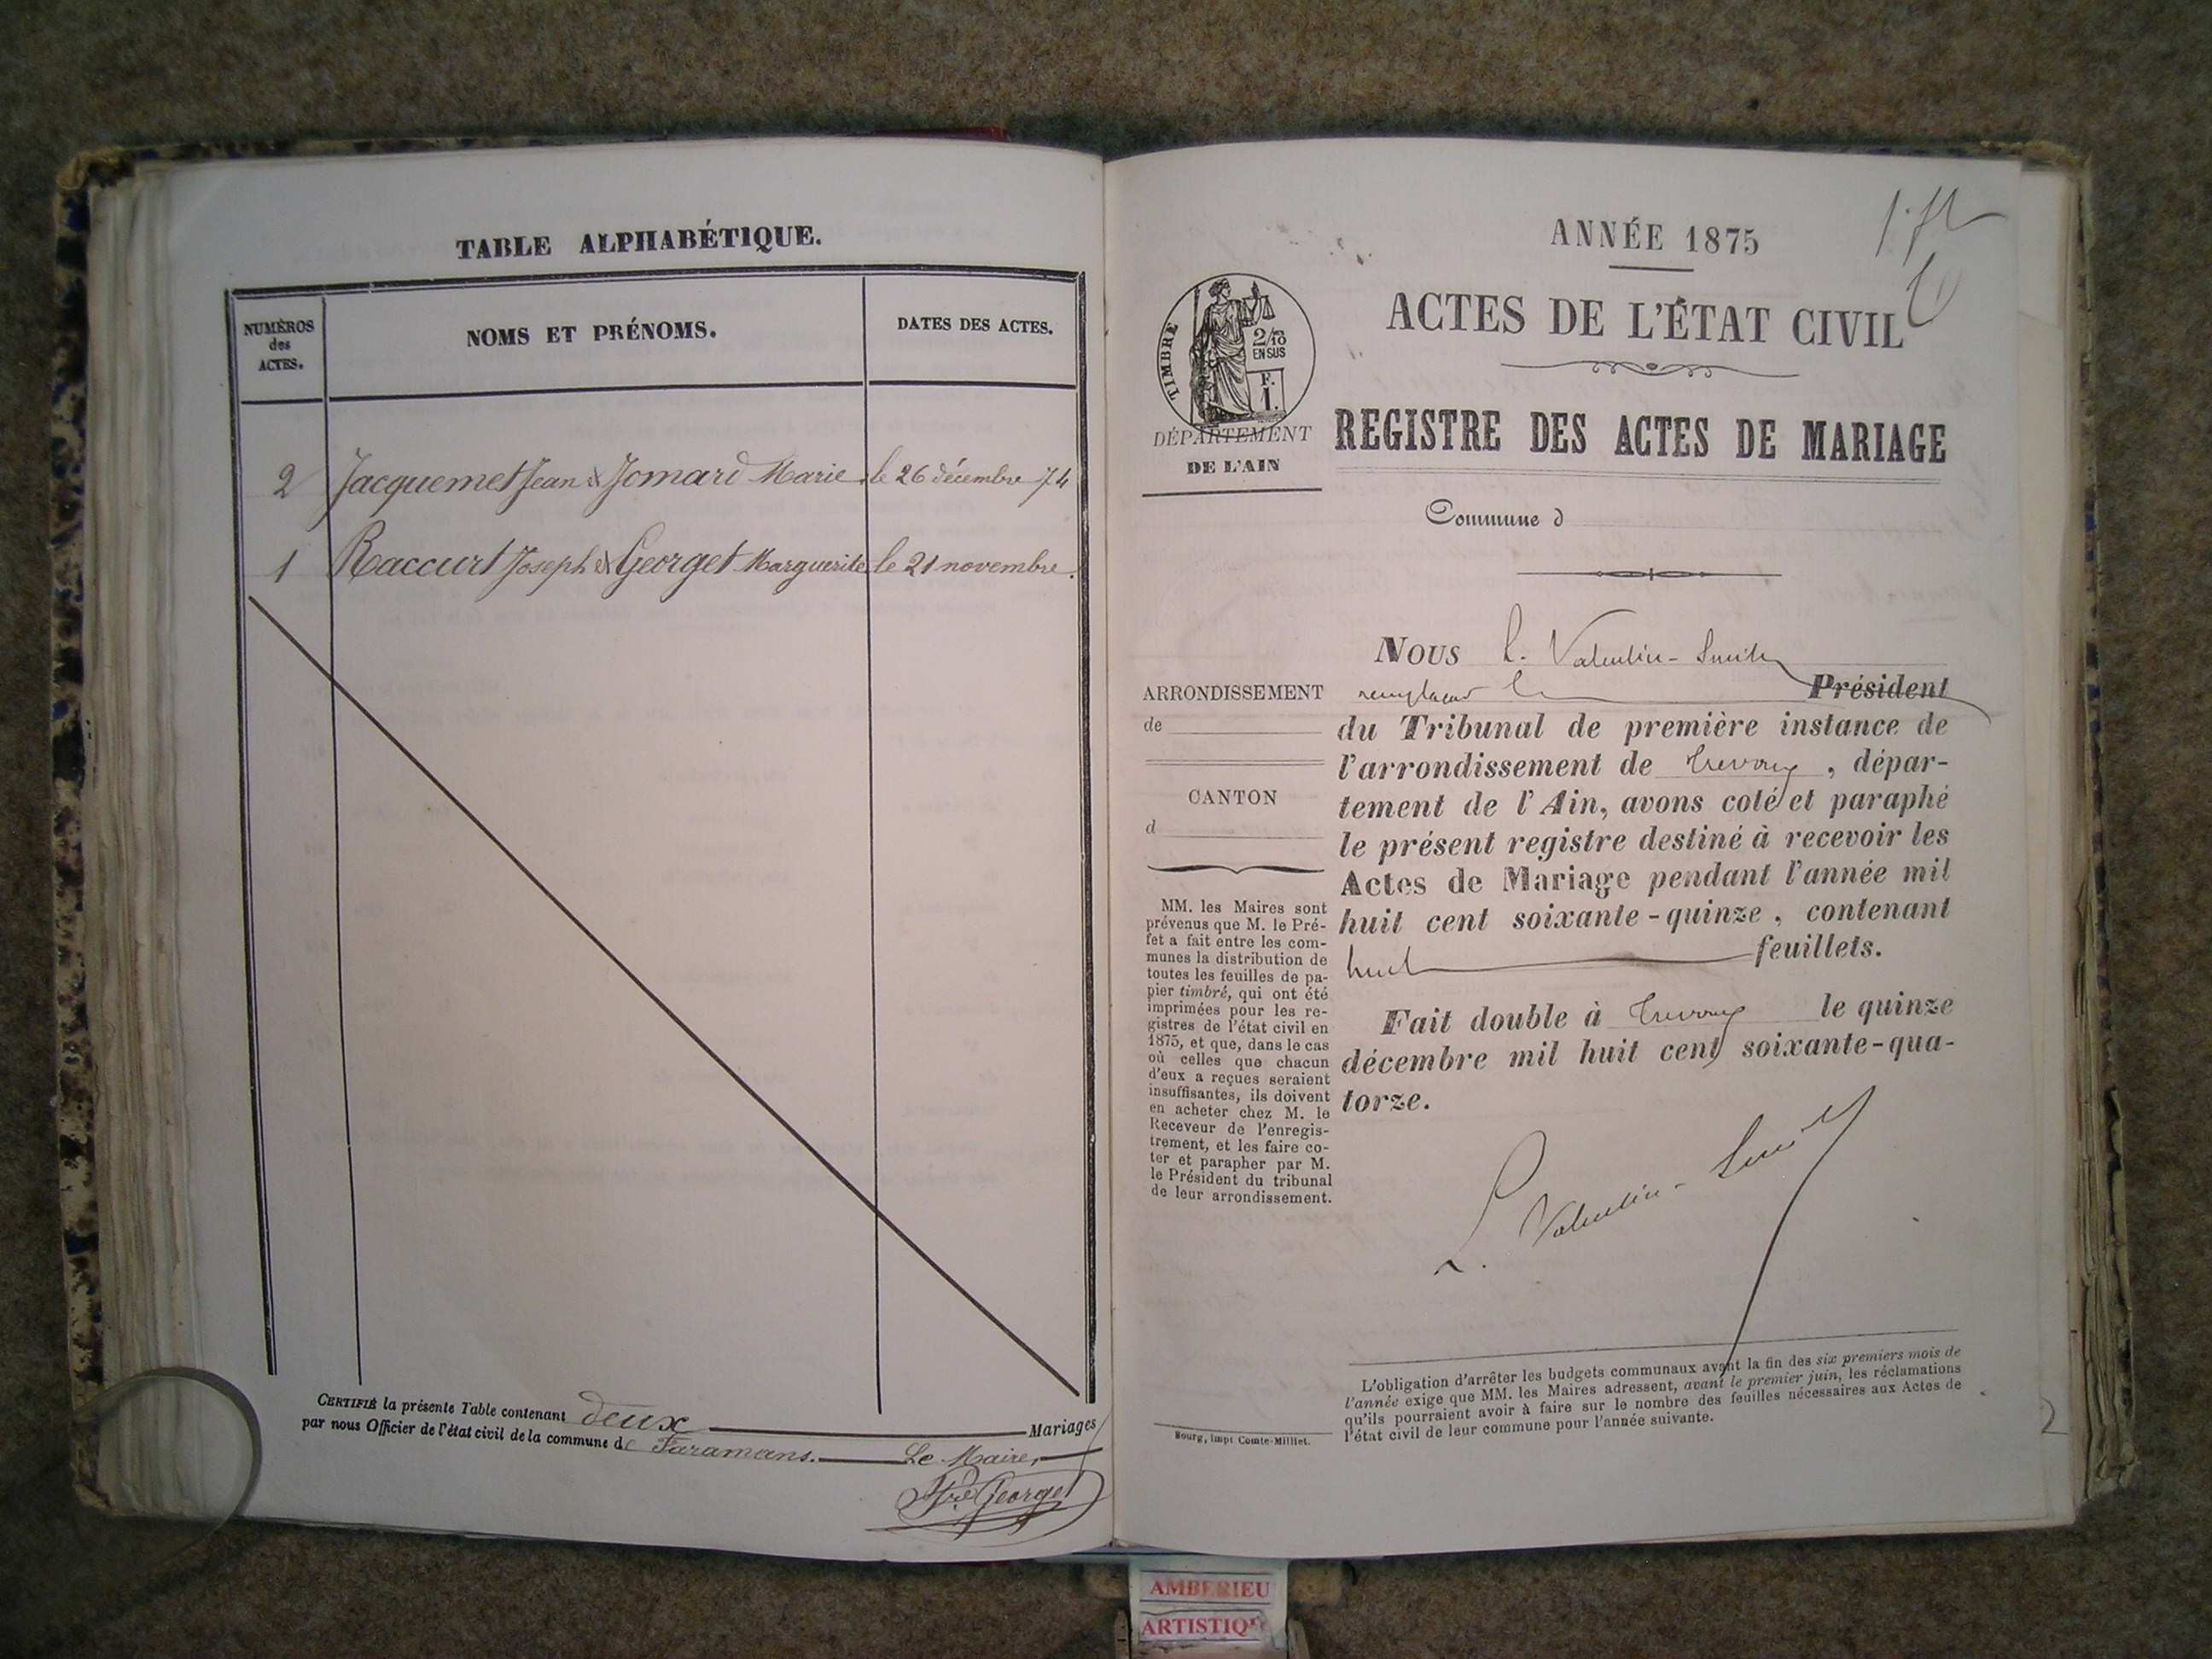 TABLE ALPHABÉTIQUE.
NUMÉROS des ACTES.
NOMS ET PRÉNOMS.
DATES DES ACTES.
2 Jacquemet Jean & Jomard Marie le 26 décembre 74
1 Raccurt Joseph & Georget Marguerite le 21 novembre.
CERTIFIÉ la présente Table contenant deux Mariages
par nous Officier de l'état civil de la commune de Faramans. Le Maire,
Georget
ANNÉE 1875
ACTES DE L'ÉTAT CIVIL
TIMBRE
2/10
EN SUS
F.
1.
DÉPARTEMENT
DE L'AIN
REGISTRE DES ACTES DE MARIAGE
Commune d
ARRONDISSEMENT
de
CANTON
d
MM. les Maires sont
prévenus que M. le Pré-
fet a fait entre les com-
munes la distribution de
toutes les feuilles de pa-
pier timbré, qui ont été
imprimées pour les re-
gistres de l'état civil en
1875, et que, dans le cas
où celles que chacun
d'eux a reçues seraient
insuffisantes, ils doivent
en acheter chez M. le
Receveur de l'enregis-
trement, et les faire co-
ter et parapher par M.
le Président du tribunal
de leur arrondissement.
Nous L. Valentin-Smith
remplaçant le Président
du Tribunal de première instance de
l'arrondissement de Trevoux, dépar-
tement de l'Ain, avons coté et paraphé
le présent registre destiné à recevoir les
Actes de Mariage pendant l'année mil
huit cent soixante-quinze, contenant
huit feuillets.
Fait double à Trevoux le quinze
décembre mil huit cent soixante-qua-
torze.
L. Valentin-Smith
L'obligation d'arrêter les budgets communaux avant la fin des six premiers mois de
l'année exige que MM. les Maires adressent, avant le premier juin, les réclamations
qu'ils pourraient avoir à faire sur le nombre des feuilles nécessaires aux Actes de
l'état civil de leur commune pour l'année suivante.
Bourg, impr Comte-Milliet.
2
AMBERIEU
ARTISTIQ